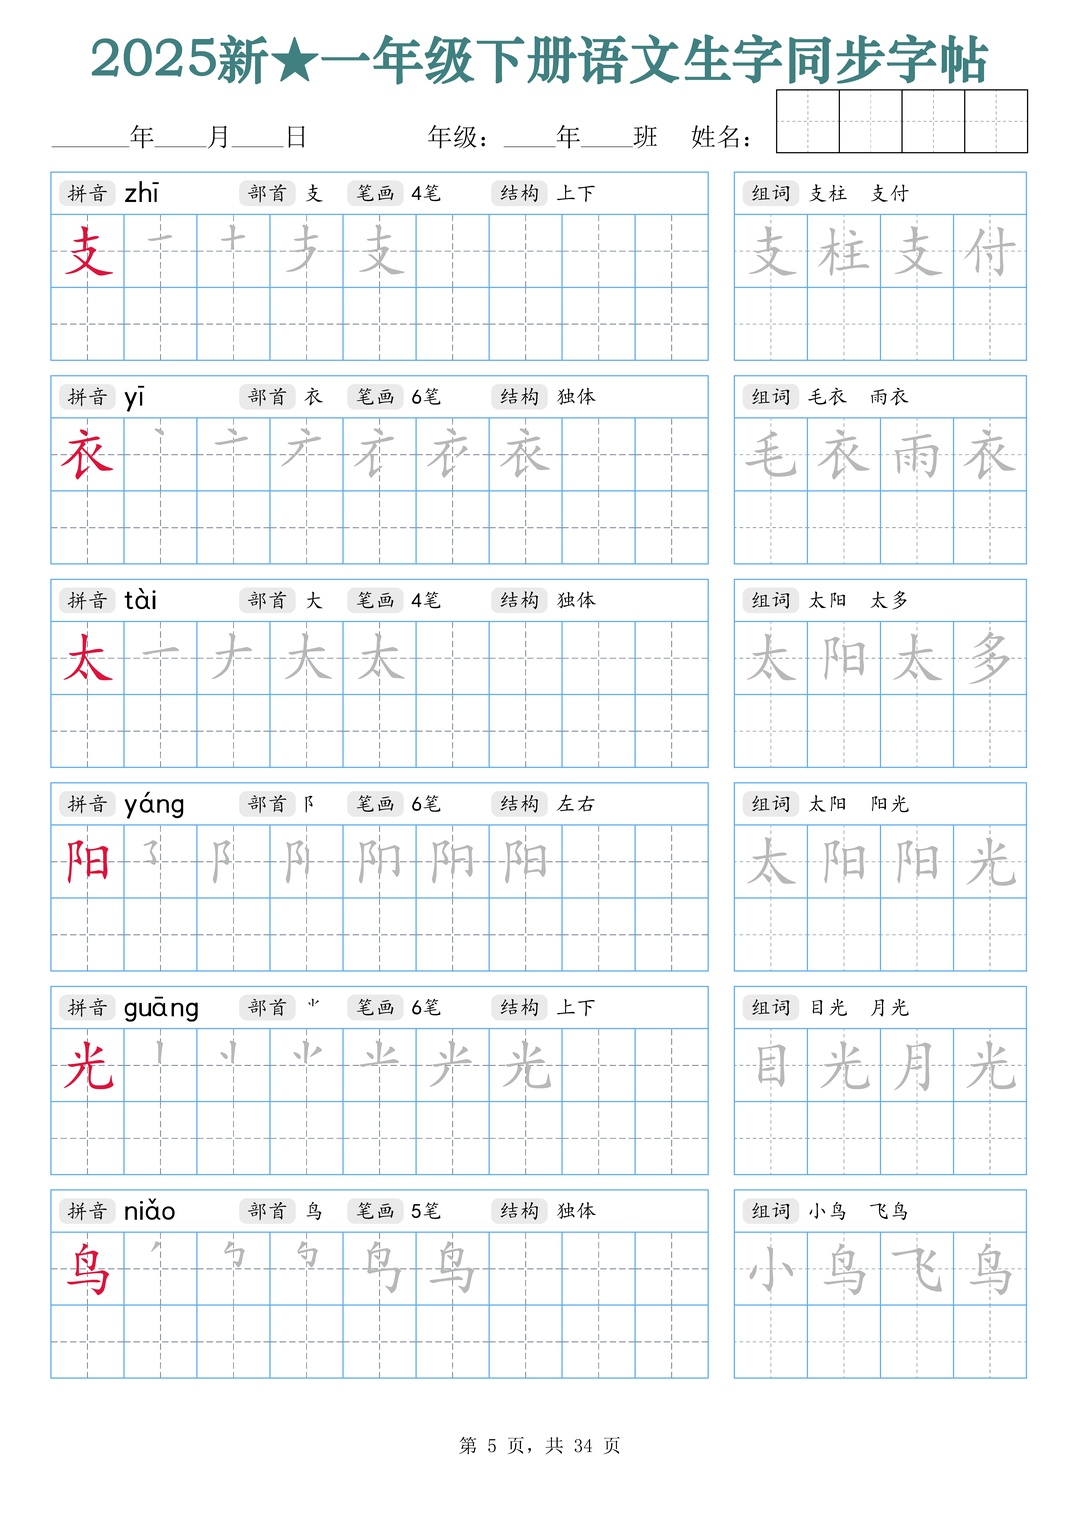 2025新★一年级下册语文生字同步字帖
______年____月____日 年级：____年____班 姓名：
拼音 zhī 部首 支 笔画 4笔 结构 上下 组词 支柱 支付
支 支 支柱支付
拼音 yī 部首 衣 笔画 6笔 结构 独体 组词 毛衣 雨衣
衣 衣 毛衣雨衣
拼音 tài 部首 大 笔画 4笔 结构 独体 组词 太阳 太多
太 一 ナ 大 太 太阳太多
拼音 yáng 部首 阝 笔画 6笔 结构 左右 组词 太阳 阳光
阳 阝 阳 太阳阳光
拼音 guāng 部首 ⺌ 笔画 6笔 结构 上下 组词 目光 月光
光 光 目光月光
拼音 niǎo 部首 鸟 笔画 5笔 结构 独体 组词 小鸟 飞鸟
鸟 鸟 小鸟飞鸟
第 5 页，共 34 页